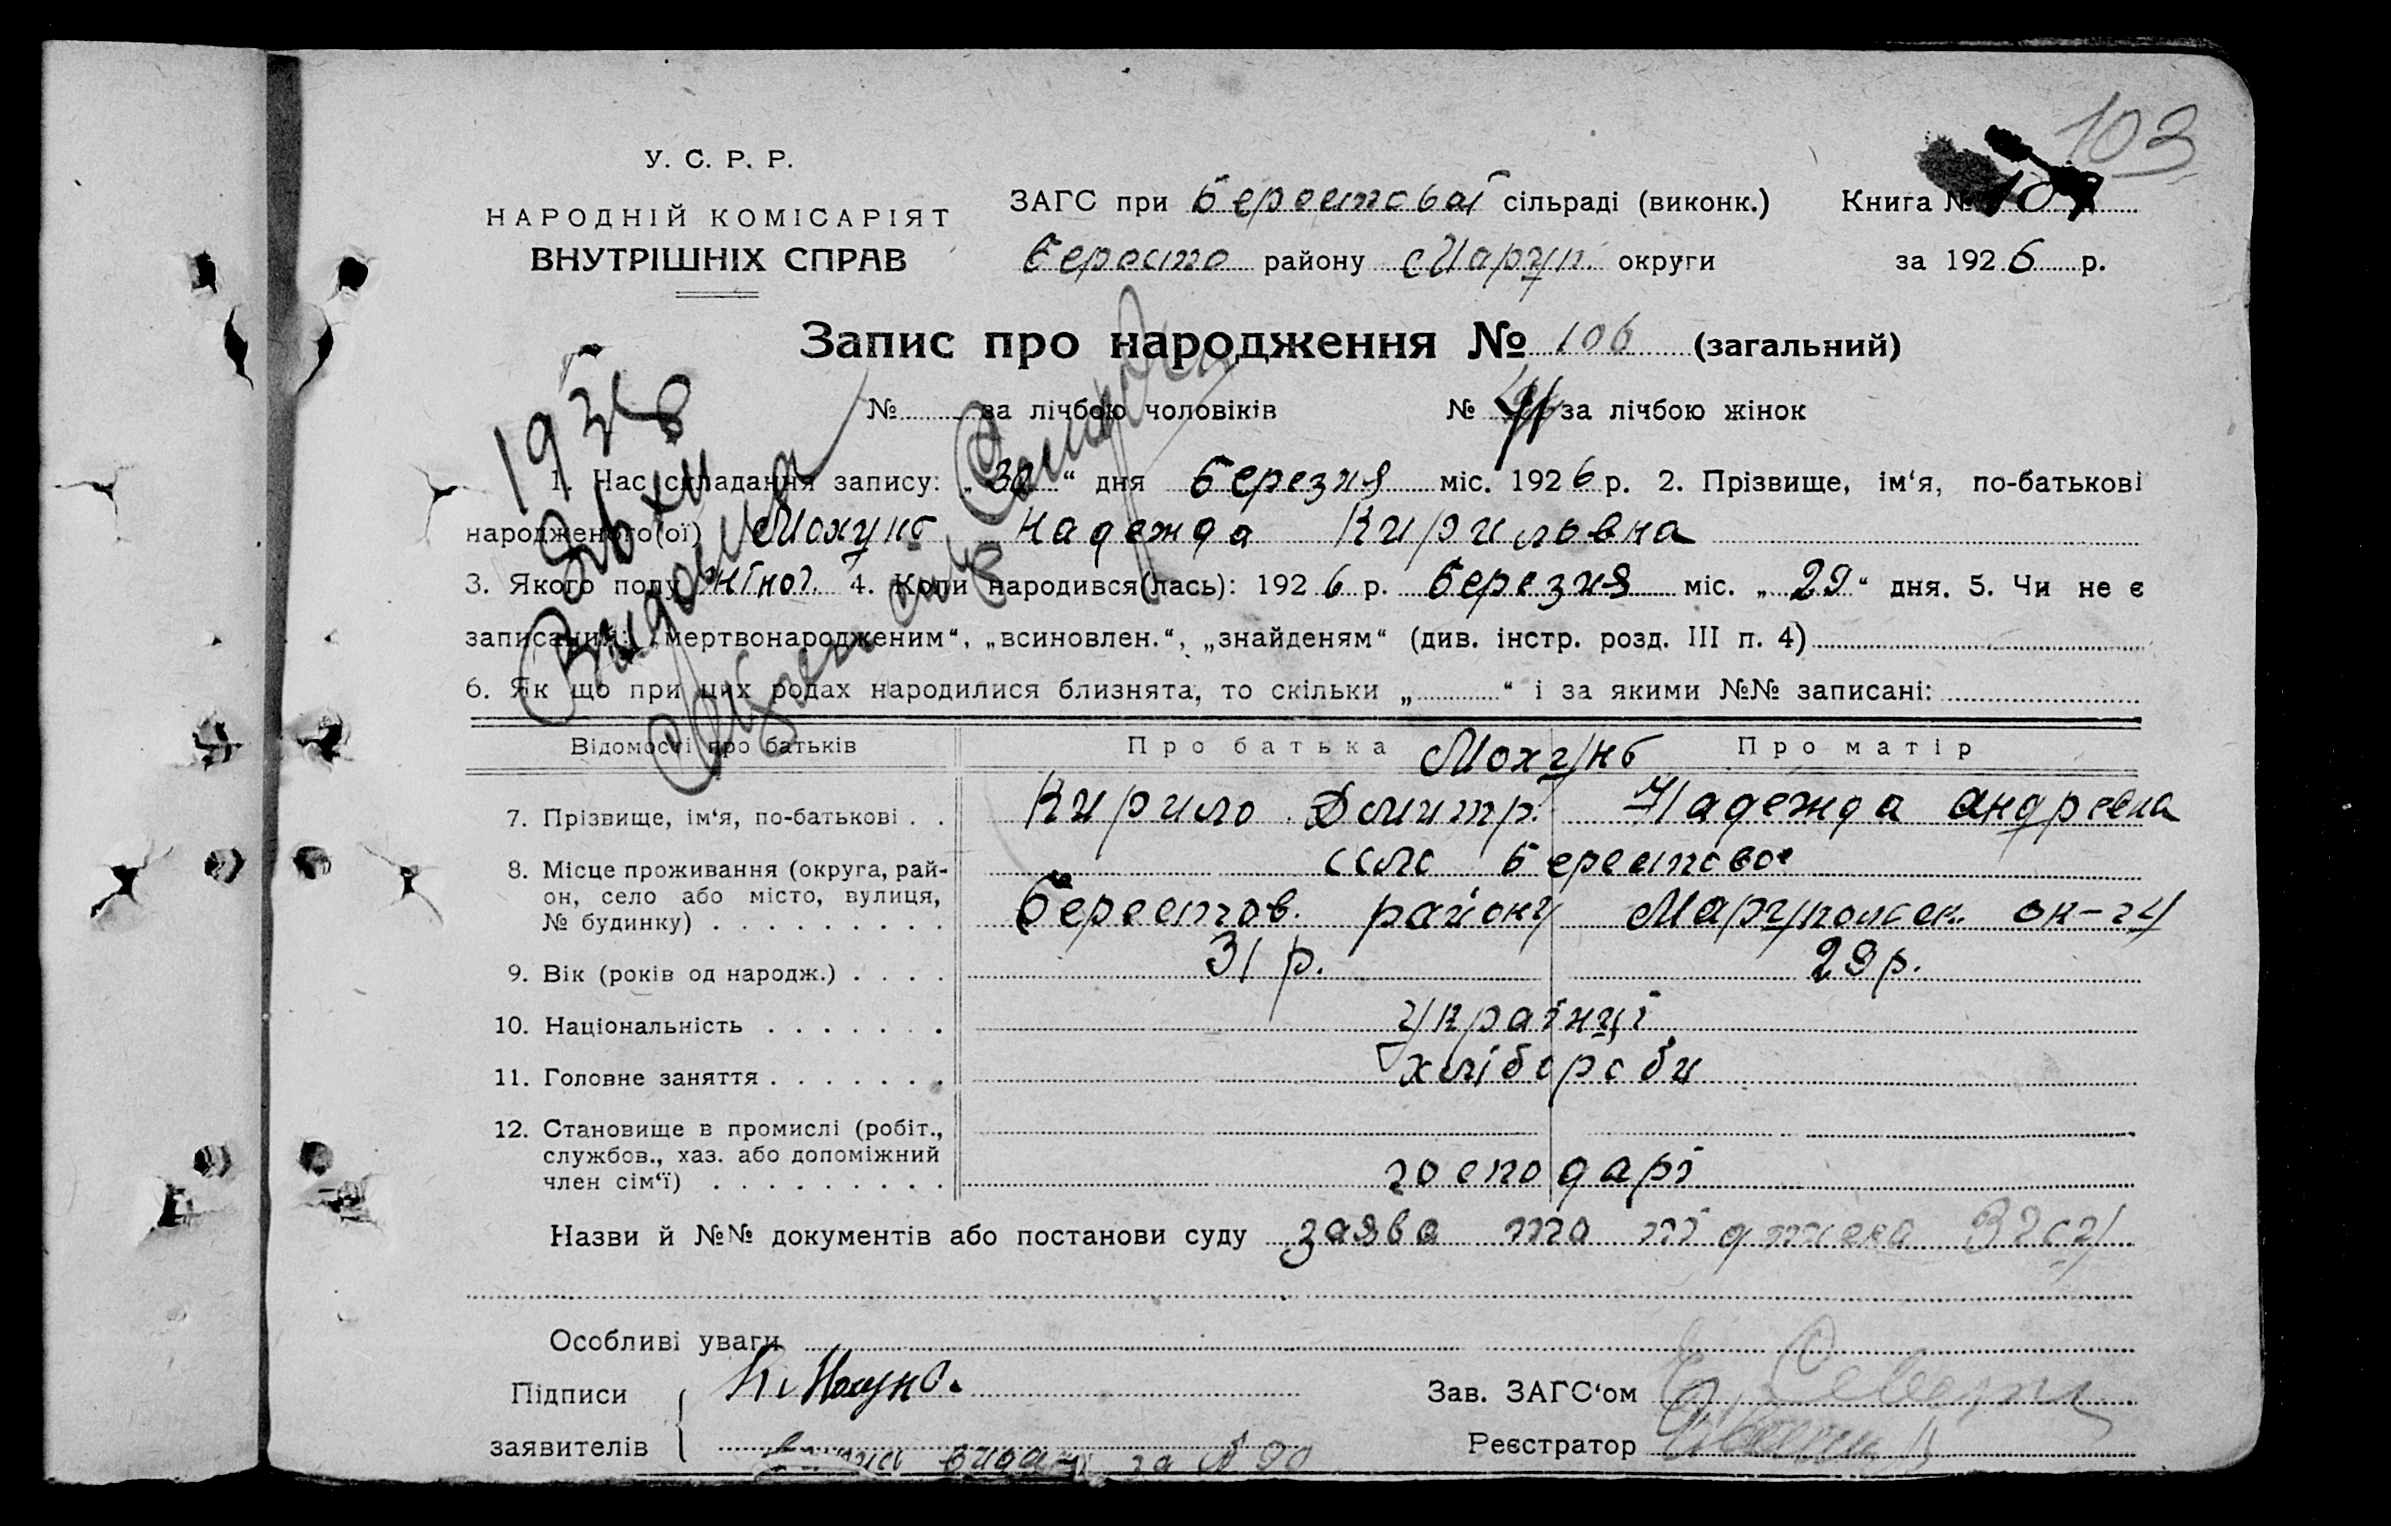 103
У. С. Р. Р.
НАРОДНІЙ КОМІСАРІЯТ
ВНУТРІШНІХ СПРАВ
ЗАГС при Берестовай сільраді (виконк.) Книга №
Бересто району Маріуп. округи за 1926 р.
Запис про народження № 106 (загальний)
№ за лічбою чоловіків № за лічбою жінок
1. Час складання запису: „30“ дня Березня міс. 1926 р. 2. Прізвище, ім‘я, по-батькові
народженого(ої) Мохунь Надежда Кирильовна
3. Якого полу жіноч. 4. Коли народився(лась): 1926 р. Березня міс. „29“ дня. 5. Чи не є
записаний: „мертвонародженим“, „всиновлен.“, „знайденям“ (див. інстр. розд. III п. 4)
6. Як що при цих родах народилися близнята, то скільки „ “ і за якими №№ записані:
Відомості про батьків Про батька Мохунь Про матір
7. Прізвище, ім‘я, по-батькові . . Кирило Дмитр. Надежда Андреевна
8. Місце проживання (округа, рай-
он, село або місто, вулиця,
№ будинку) село Берестовое
Берестов. району Маріупольск. ок-ги
9. Вік (років од народж.) . . . . 31 р. 29 р.
10. Національність . . . . . . . Українці
11. Головне заняття . . . . . . . хлібороби
12. Становище в промислі (робіт.,
службов., хаз. або допоміжний
член сім‘ї) . . . . . . . . . господарі
Назви й №№ документів або постанови суду заява та
Особливі уваги
Підписи К. Мохунь.
заявителів
Зав. ЗАГС‘ом
Реєстратор